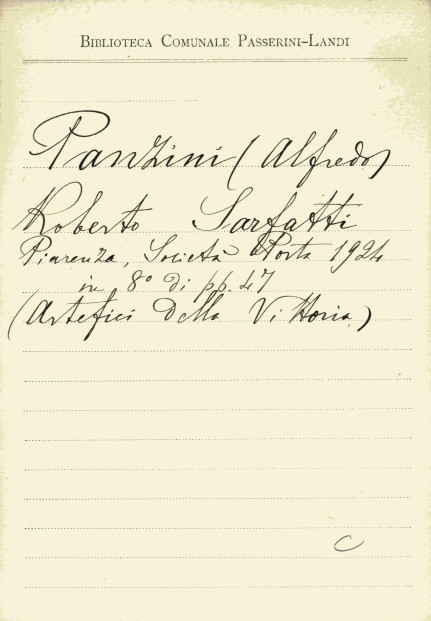 BIBLIOTECA COMUNALE PASSERINI-LANDI
Panzini (Alfredo)
Roberto Sarfatti
Piacenza, Società Porta 1924
in 8° di pp. 47
(Artefici della Vittoria)
C